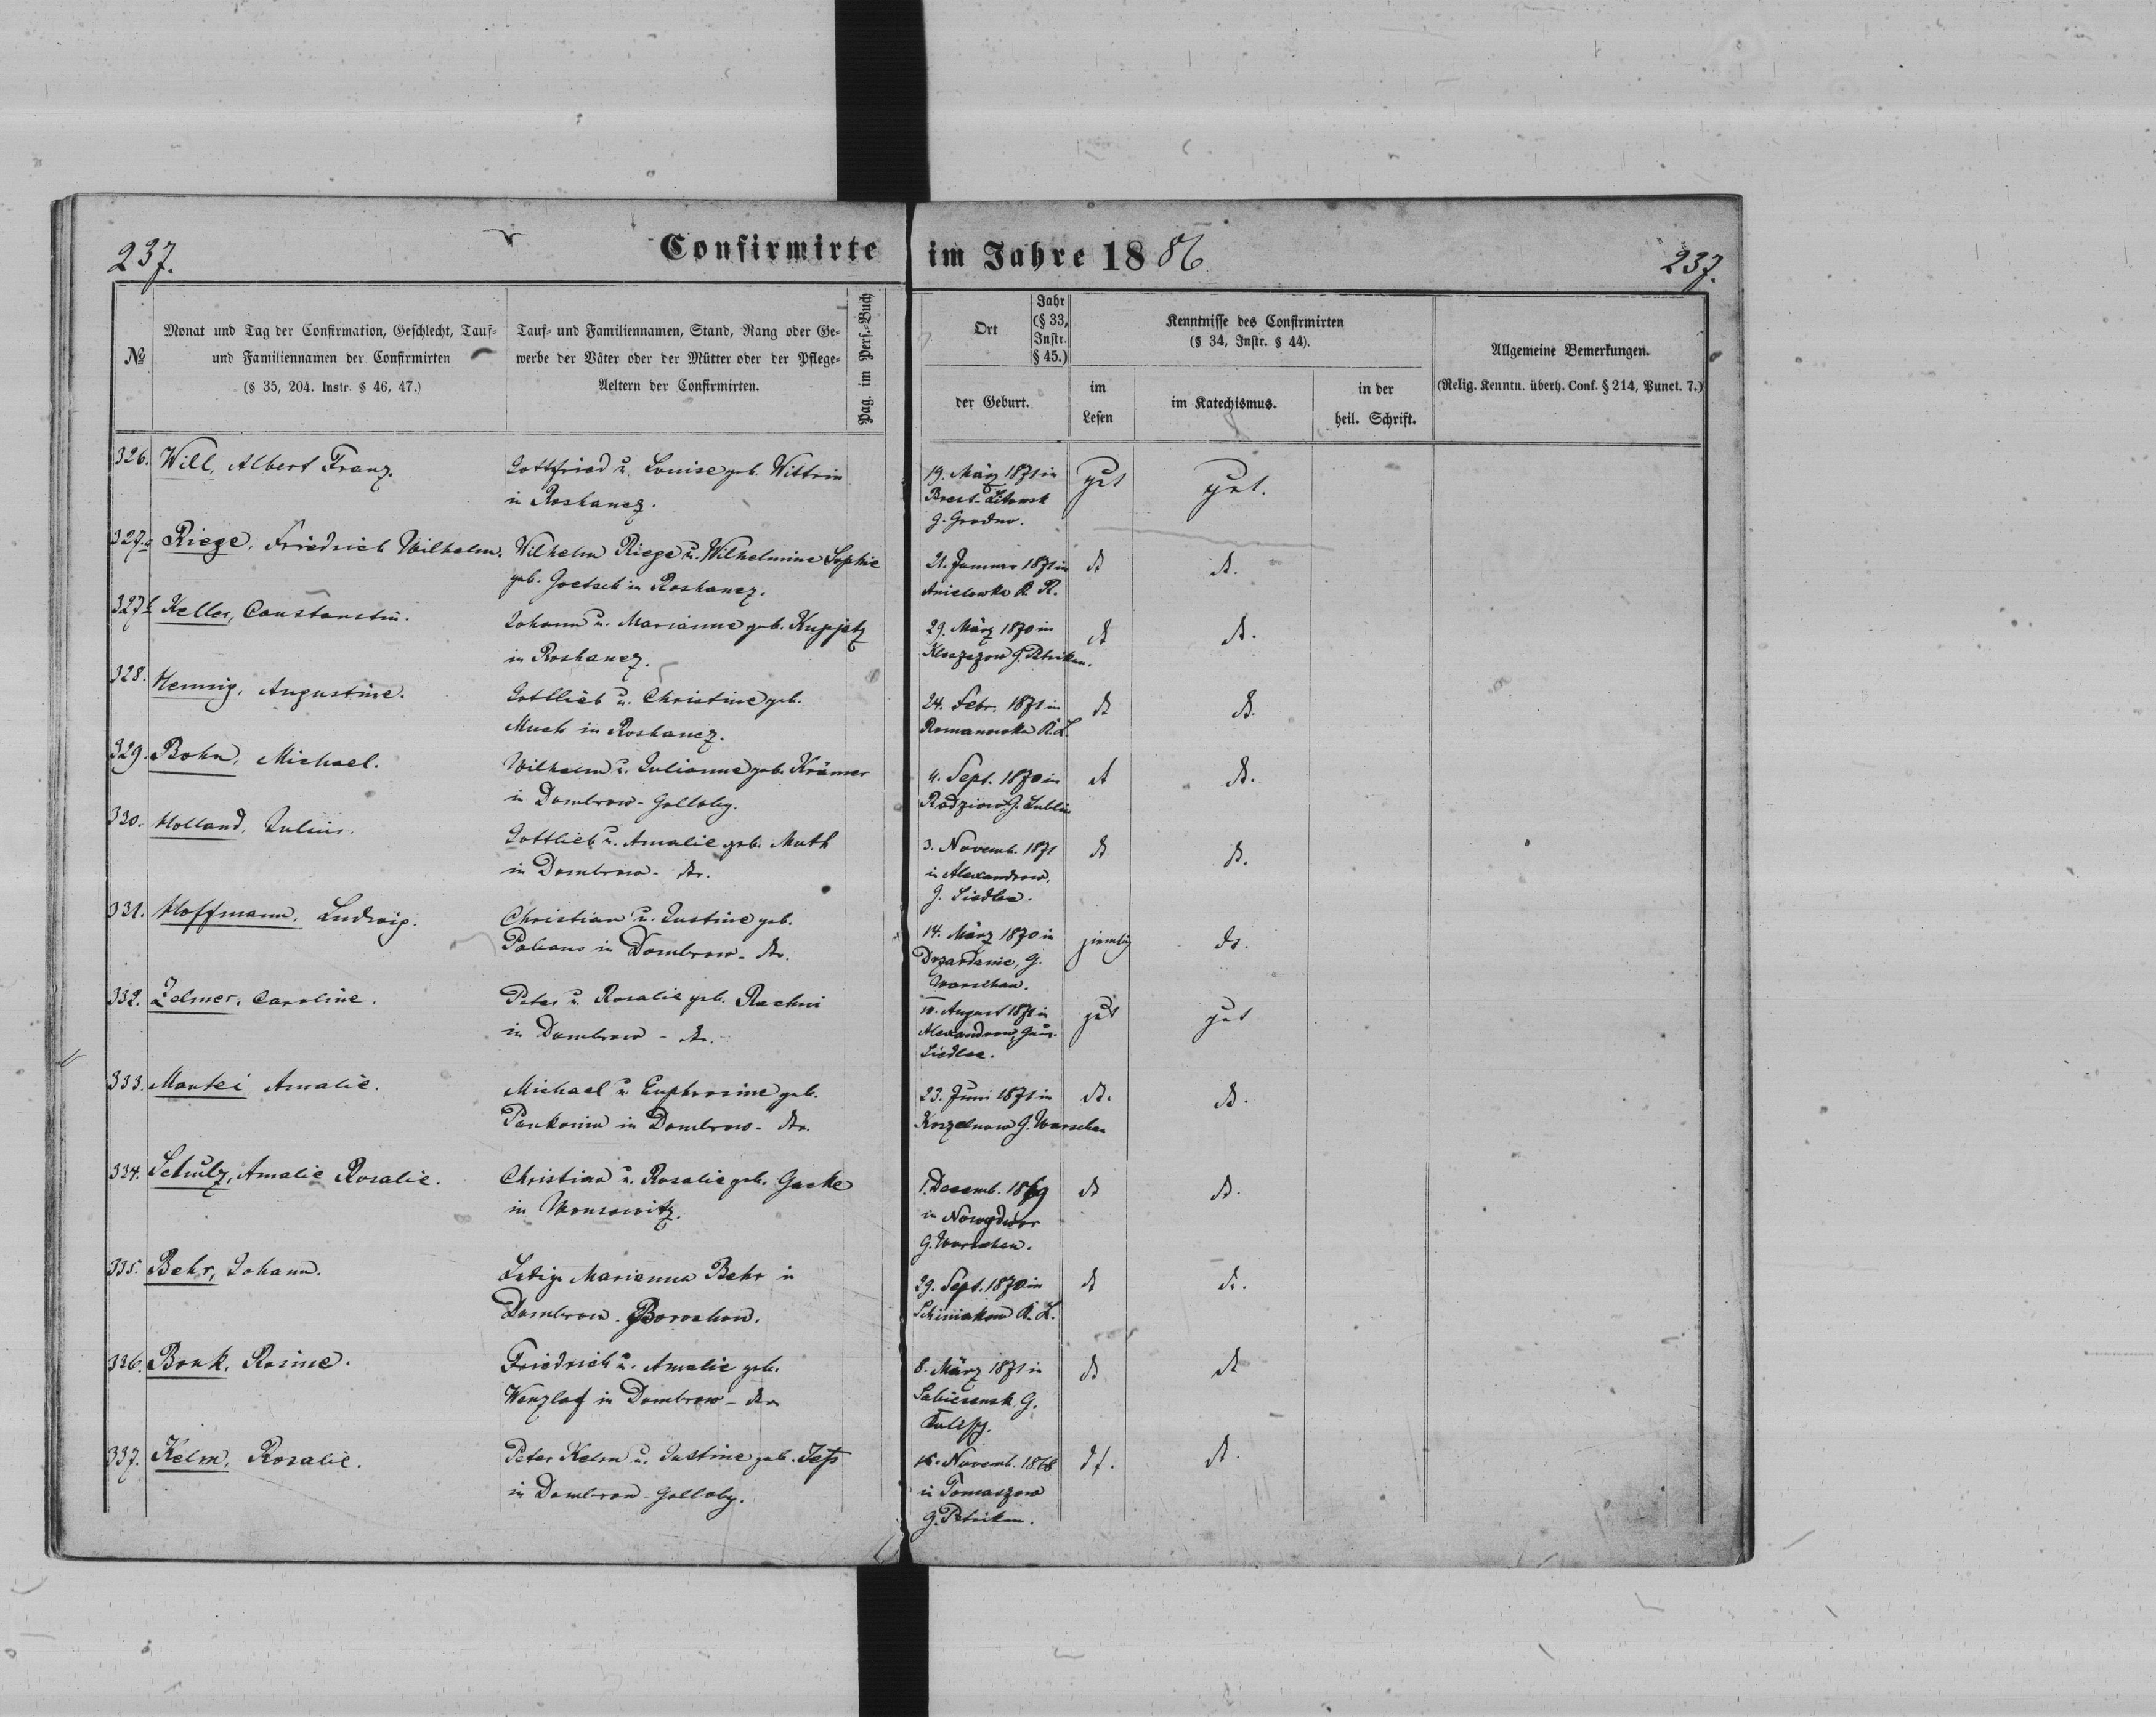 237.
Confirmirte im Jahre 1886
237.
№
Monat und Tag der Confirmation, Geschlecht, Tauf-
und Familiennamen der Confirmirten
(§ 35, 204. Instr. § 46, 47.)
Tauf- und Familiennamen, Stand, Rang oder Ge-
werbe der Väter oder der Mütter oder der Pflege-
Aeltern der Confirmirten.
Pag. im Pers.-Buch
Ort
Jahr
(§ 33,
Instr.
§ 45.)
der Geburt.
Kenntnisse des Confirmirten
(§ 34, Instr. § 44).
im
Lesen
im Katechismus.
in der
heil. Schrift.
Allgemeine Bemerkungen.
(Relig. Kenntn. überh. Conf. § 214, Punct. 7.)
326. Will, Albert Franz.
Gottfried u. Louise geb. Wittrin
in Roshanez.
19. März 1871 in
Brest-Litowsk
G. Grodno.
gut
gut.
327.a Riege, Friedrich Wilhelm.
Wilhelm Riege u. Wilhelmine Sophie
geb. Goetsch in Roshanez.
21. Januar 1871 in
Anielowka K. R.
dt
dt.
327b Keller, Constantin.
Johann u. Marianne geb. Kuppjetz
in Roshanez.
29. März 1870 in
Kleszezow G. Petrikau.
dt
dt.
328. Hennig, Augustine.
Gottlieb u. Christine geb.
Much in Roshanez.
24. Febr. 1871 in
Romanowka K. L.
dt
dt.
329. Bohn, Michael.
Wilhelm u. Julianne geb. Krämer
in Dombrow-Golloby.
4. Sept. 1870 in
Radziow G. Lublin
dt
dt.
330. Holland, Julius.
Gottlieb u. Amalie geb. Muth
in Dombrow- dto.
3. Novemb. 1871
in Alexandrow.
G. Siedlce.
dt
dt.
331. Hoffmann, Ludwig.
Christian u. Justine geb.
in Dombrow- dto.
14. März 1870 in
G.
Warschau.
ziemlig
dt.
332. Zelmer, Caroline.
Peter u. Rosalie geb.
in Dombrow - dto.
10. August 1871 in
Alexandrow, Guv.
Siedlce.
gut
gut
333. Mantei Amalie.
Michael u. Euphrosine geb.
in Dombrow- dto.
23. Juni 1871 in
G. Warschau
dt.
dt.
334. Schulz, Amalie Rosalie.
Christian u. Rosalie geb. Gaske
in Wonsowitz.
1. Decemb. 1869
in Nowydwor
G. Warschau.
dt
dt.
335. Behr, Johann.
Ledige Marianna Behr in
Dombrow-
29. Sept. 1870 in
K. L.
dt
dt.
336. Bonk, Rosine.
Friedrich u. Amalie geb.
Wenzlaf in Dombrow- dto
8. März 1871 in
G.
dt
dt
337. Kelm, Rosalie.
Peter Kelm u. Justine geb. Jeß
in Dombrow-Golloby.
Novemb. 1868
in Tomaszow
G. Petrikau.
dt.
dt.